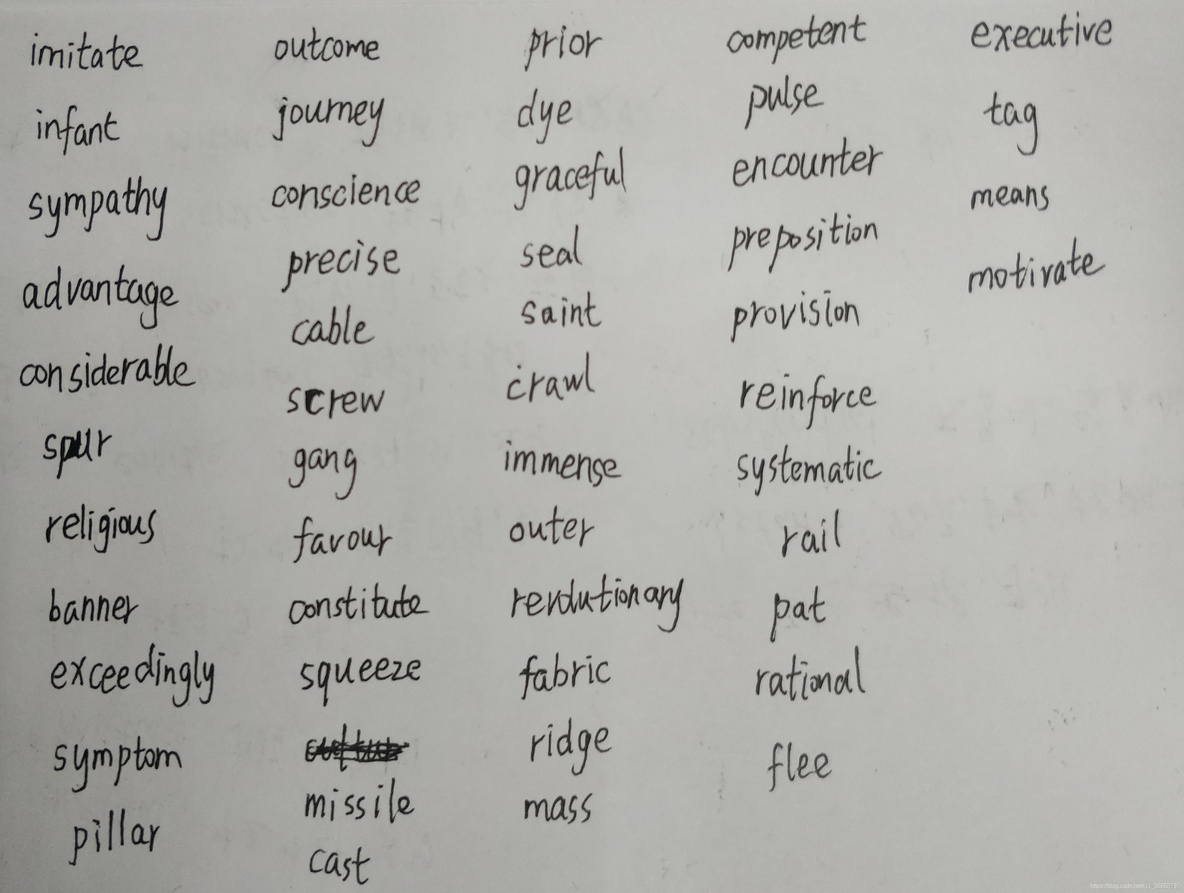 imitate
infant
sympathy
advantage
considerable
spur
religious
banner
exceedingly
symptom
pillar
outcome
journey
conscience
precise
cable
screw
gang
favour
constitute
squeeze
missile
cast
prior
dye
graceful
seal
saint
crawl
immense
outer
revolutionary
fabric
ridge
mass
competent
pulse
encounter
preposition
provision
reinforce
systematic
rail
pat
rational
flee
executive
tag
means
motivate